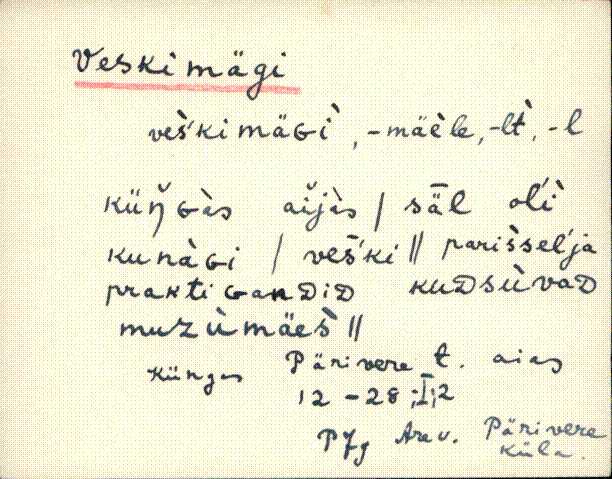 Veskimägi
vès̆'kimäGì, -mäèle, -lt̀, -l
küŋ̆Gàs äĭjàs / säl ol'ì
kunàGi / ves̆'ki || parìssel'ja
praktiGanDiD kuDsùvaD
muzùmäes̀ ||
Küngas Pärivere t. aias
12-28; I; 2
PJg Are v. Pärivere
küla.